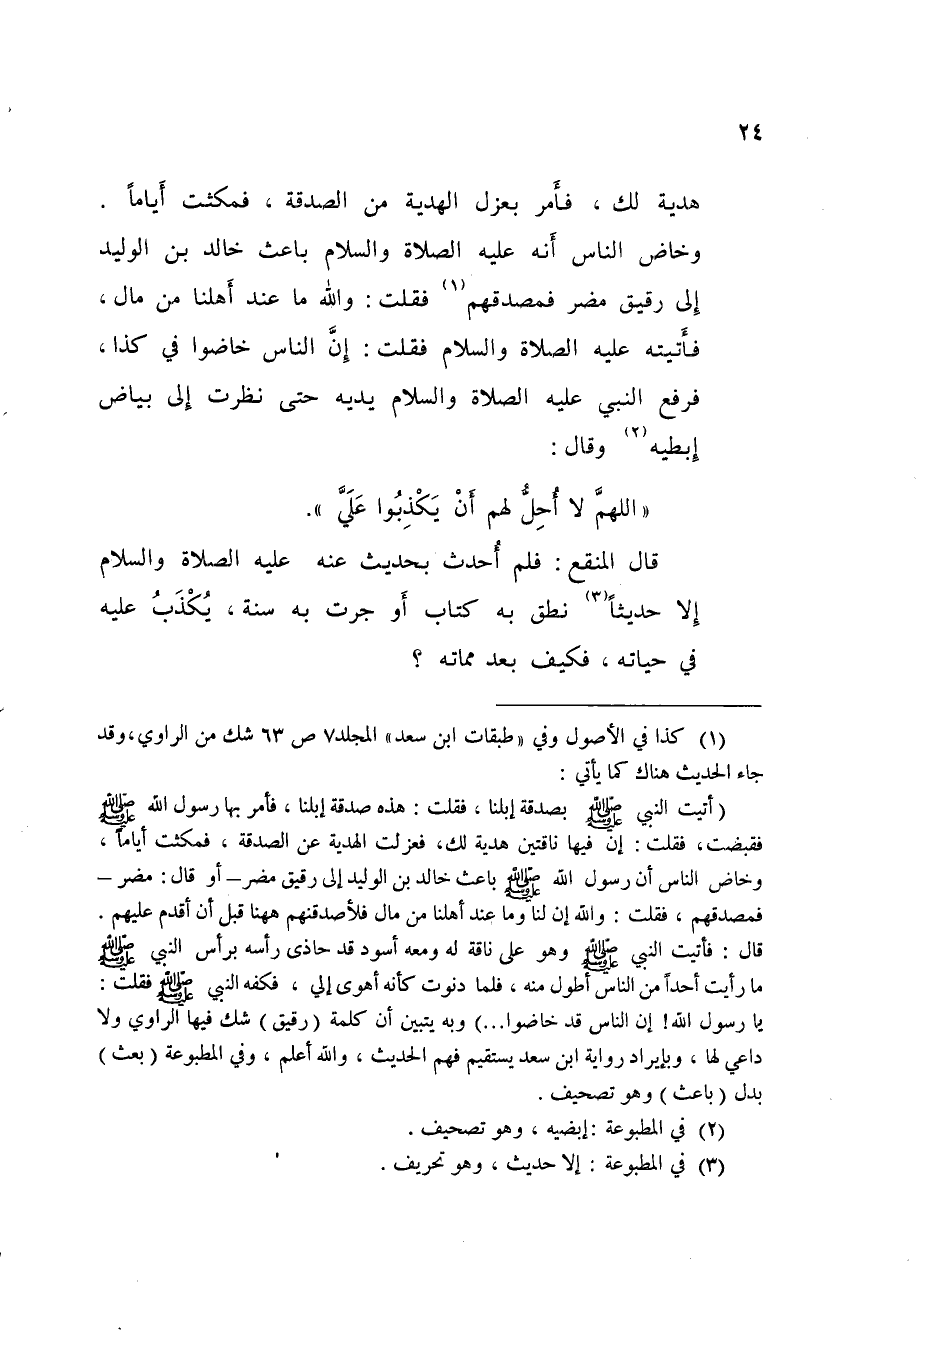 ٢٤
هدية لك ، فأَمر بعزل الهدية من الصدقة ، فمكثت أَياماً .
وخاض الناس أَنه عليه الصلاة والسلام باعث خالد بن الوليد
إلى رقيق مضر فمصدقهم(١) فقلت : والله ما عند أَهلنا من مال ،
فأَتيته عليه الصلاة والسلام فقلت : إنَّ الناس خاضوا في كذا ،
فرفع النبي عليه الصلاة والسلام يديه حتى نظرت إلى بياض
إبطيه(٢) وقال :
« اللهمَّ لا أُحِلُّ لهم أَنْ يَكْذِبُوا عَلَيَّ ».
قال المنقع : فلم أُحدث بحديث عنه عليه الصلاة والسلام
إلا حديثاً(٣) نطق به كتاب أَو جرت به سنة ، يُكْذَبُ عليه
في حياته ، فكيف بعد مماته ؟
(١) كذا في الأصول وفي «طبقات ابن سعد» المجلد٧ ص ٦٣ شك من الراوي،وقد
جاء الحديث هناك كما يأتي :
( أتيت النبي ﷺ بصدقة إبلنا ، فقلت : هذه صدقة إبلنا ، فأمر بها رسول الله ﷺ
فقبضت، فقلت : إن فيها ناقتين هدية لك، فعزلت الهدية عن الصدقة ، فمكثت أياماً ،
وخاض الناس أن رسول الله ﷺ باعث خالد بن الوليد إلى رقيق مضر– أو قال : مضر –
فمصدقهم ، فقلت : والله إن لنا وما عند أهلنا من مال فلأصدقنهم ههنا قبل أن أقدم عليهم .
قال : فأتيت النبي ﷺ وهو على ناقة له ومعه أسود قد حاذى رأسه برأس النبي ﷺ
ما رأيت أحداً من الناس أطول منه ، فلما دنوت كأنه أهوى إلي ، فكفه النبي ﷺ فقلت :
يا رسول الله! إن الناس قد خاضوا...) وبه يتبين أن كلمة (رقيق) شك فيها الراوي ولا
داعي لها ، وبإيراد رواية ابن سعد يستقيم فهم الحديث ، والله أعلم ، وفي المطبوعة ( بعث )
بدل ( باعث ) وهو تصحيف .
(٢) في المطبوعة :إبضيه ، وهو تصحيف .
(٣) في المطبوعة : إلا حديث ، وهو تحريف .